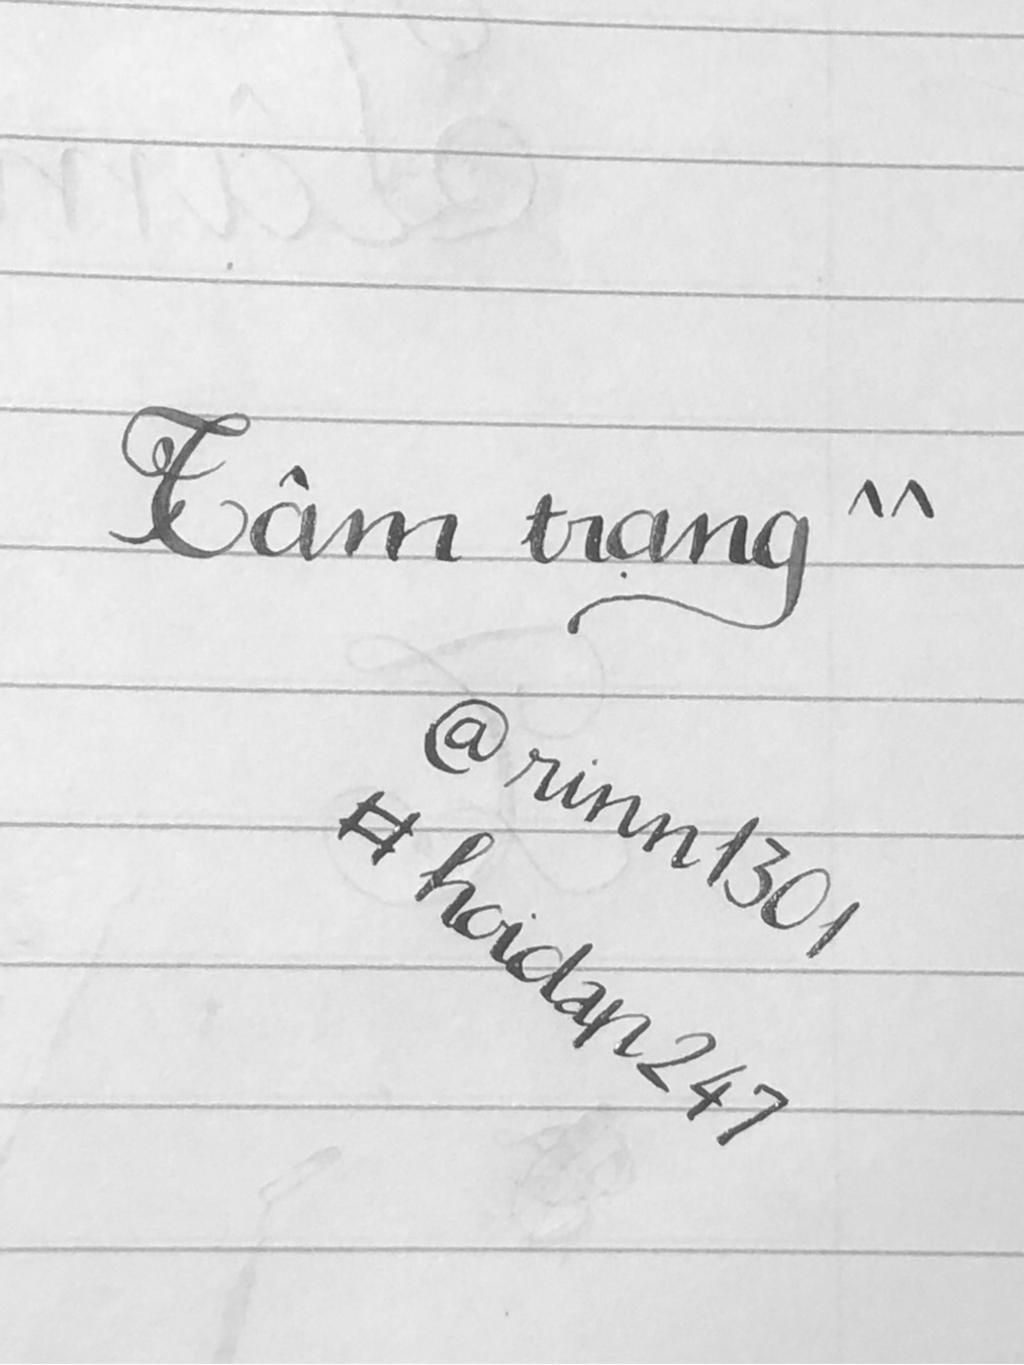 Tâm trạng ^^
@rinn1301
#hoidap247